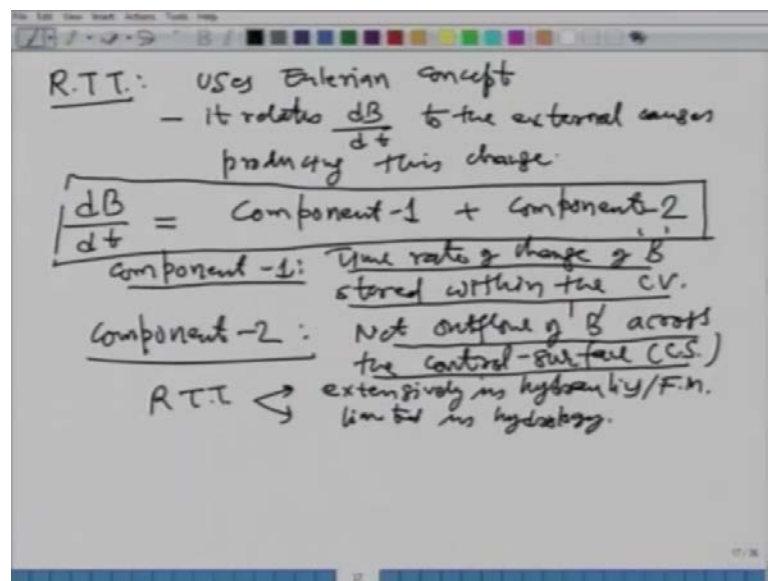 File Edit View Insert Actions Tools Help
R.T.T.: Uses Eulerian concept
- it relates dB/dt to the external causes
producing this change.
dB/dt = Component-1 + Component-2
Component-1: Time rate of change of 'B'
stored within the CV.
Component-2: Net outflow of 'B' across
the control-surface (C.S.)
R.T.T extensively in hydraulics/F.M.
limited in hydrology.
17/36